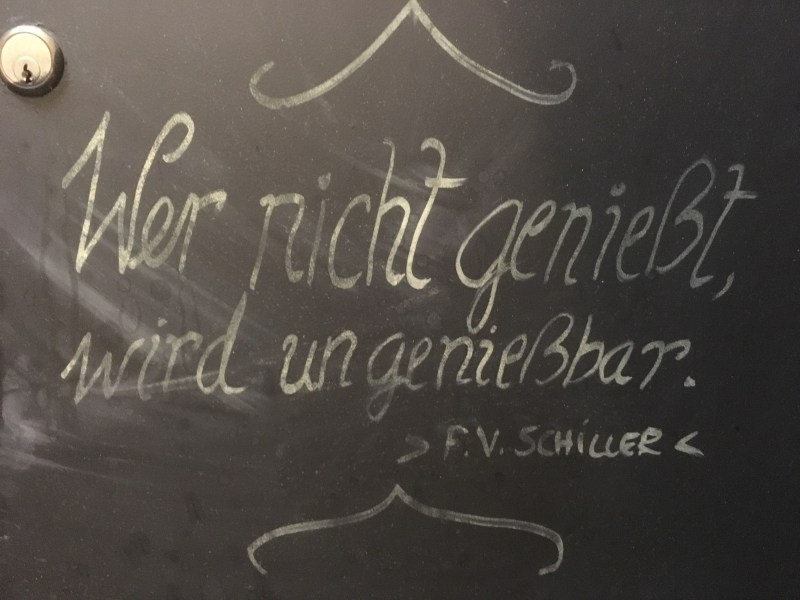 Wer nicht genießt,
wird ungenießbar.
> F. V. SCHiLLER <